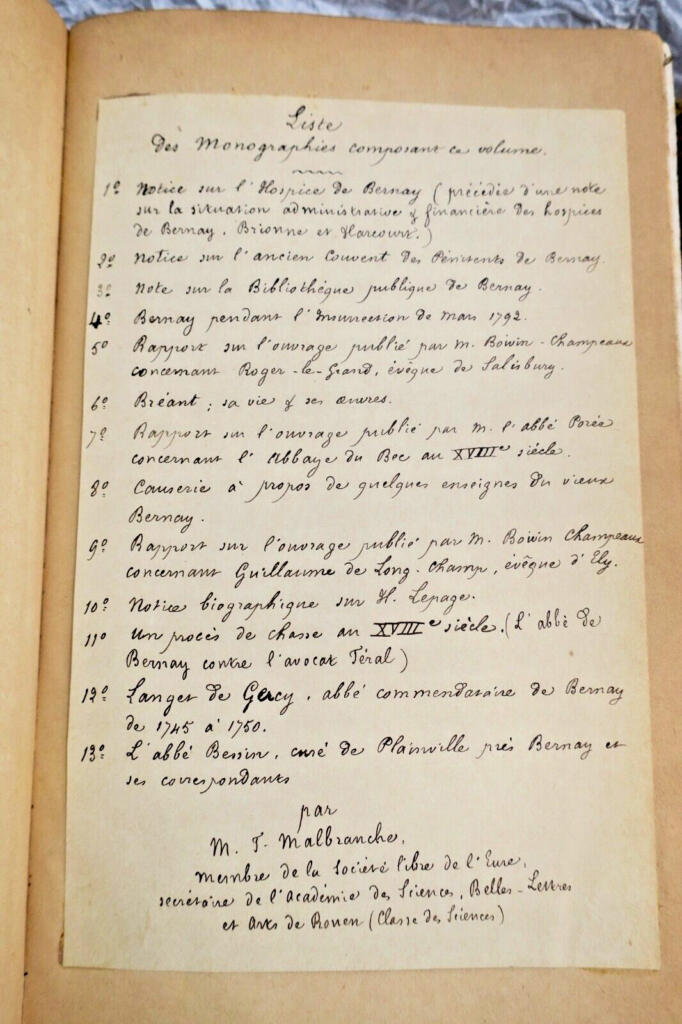 Liste
Des Monographies composant ce volume.
1º Notice sur l'Hospice de Bernay (précédée d'une note
sur la situation administrative & financière des hospices
de Bernay, Brionne et Harcourt.)
2º Notice sur l'ancien Couvent des Pénitents de Bernay.
3º Note sur la Bibliothèque publique de Bernay.
4º Bernay pendant l'Insurrection de Mars 1792.
5º Rapport sur l'ouvrage publié par M. Boivin-Champeaux
concernant Roger-le-Grand, évêque de Salisbury.
6º Bréant; sa vie & ses œuvres.
7º Rapport sur l'ouvrage publié par M. l'abbé Porée
concernant l'Abbaye du Bec au XVIIIe siècle.
8º Causerie à propos de quelques enseignes du vieux
Bernay.
9º Rapport sur l'ouvrage publié par M. Boivin Champeaux
concernant Guillaume de Long-Champ, évêque d'Ely.
10º Notice biographique sur H. Lepage.
11º Un procès de chasse au XVIIIe siècle. (L'abbé de
Bernay contre l'avocat Féral)
12º Languet de Gercy, abbé commendataire de Bernay
de 1745 à 1750.
13º L'abbé Bessin, curé de Plainville près Bernay et
ses correspondants
par
M. F. Malbranche,
membre de la Société libre de l'Eure,
secrétaire de l'Académie des Sciences, Belles-Lettres
et Arts de Rouen (Classe des Sciences)